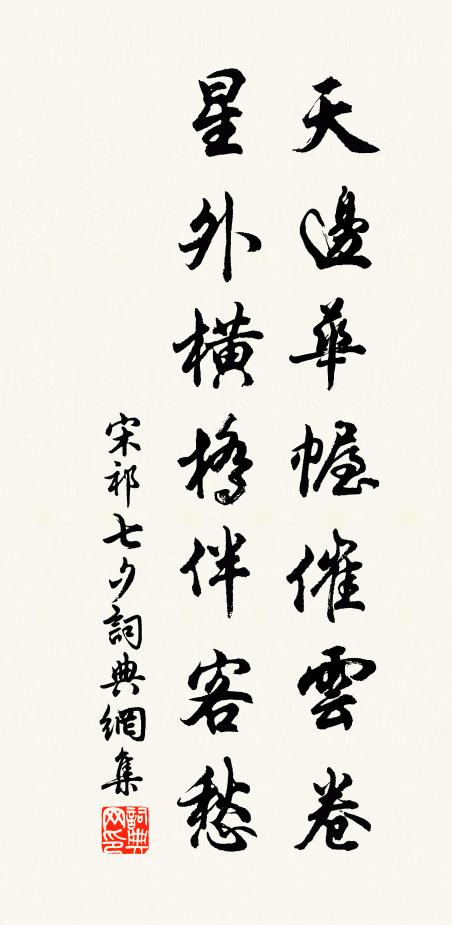 天邊華幄催雲卷
星外橫橋伴客愁
宋祁七夕詞典網集
詞典网印